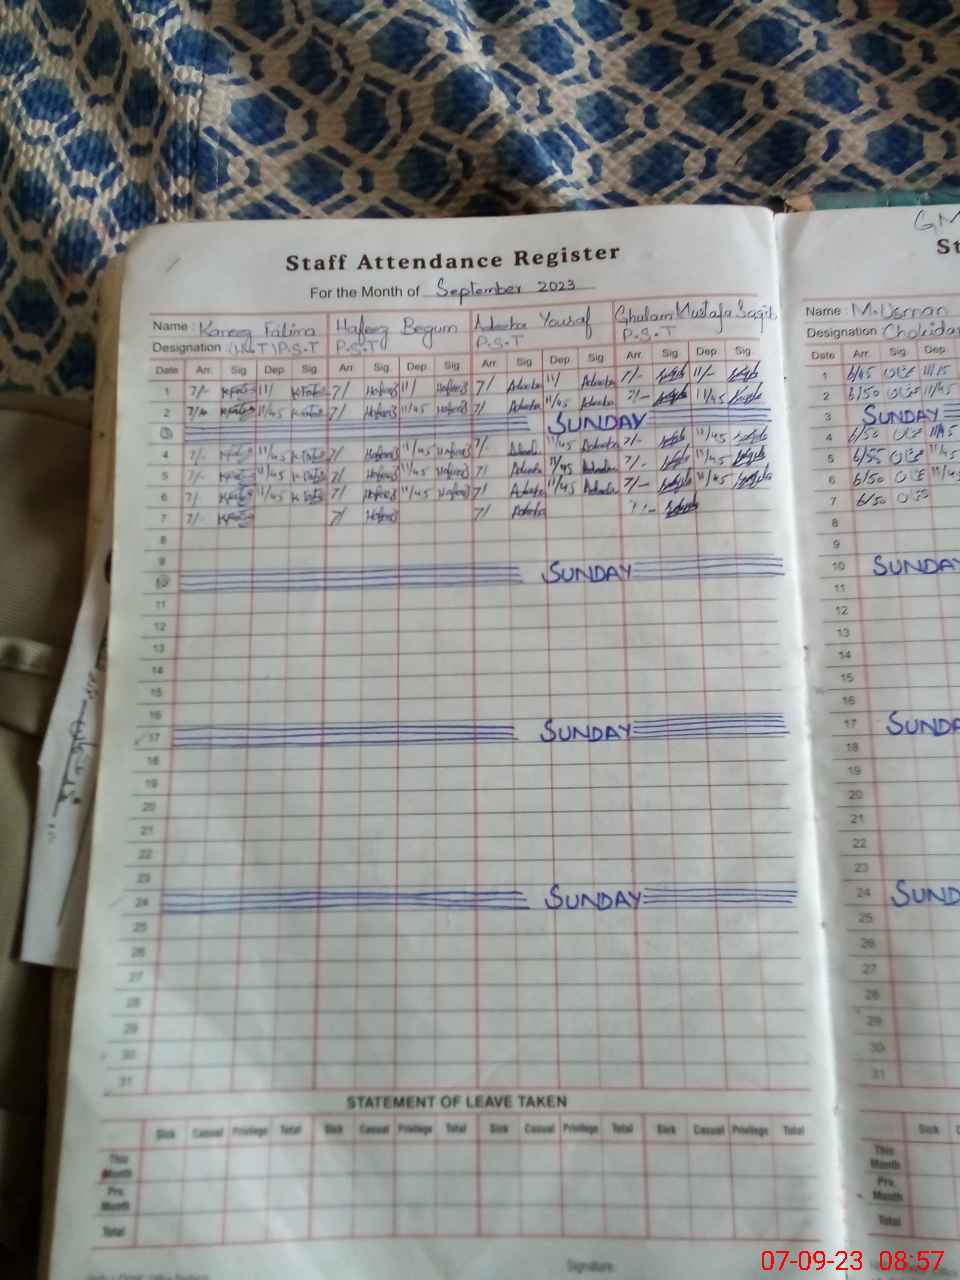 GM
Staff Attendance Register
St
For the Month of September 2023
Name : Kaneez Fatima Hafeez Begum Adeeba Yousaf Ghulam Mustafa Saqib
Designation : (H.T) P.S.T P.S.T P.S.T P.S.T
Name : M. Usman
Designation Chokidar
Date Arr. Sig Dep. Sig. Arr. Sig Dep. Sig Arr. Sig Dep. Sig Arr. Sig Dep. Sig.
Date Arr. Sig Dep.
1 7/- 11/ 7/ Hafeez 11/ Hafeez 7/ Adeeba 11/ Adeeba 7/- 11/-
2 7/- 11/45 7/ Hafeez 11/45 Hafeez 7/ Adeeba 11/45 Adeeba 7/- 11/45
3 SUNDAY
4 7/- 11/45 7/ Hafeez 11/45 Hafeez 7/- 11/45 Adeeba 7/- 11/45
5 7/- 11/45 7/ Hafeez 11/45 Hafeez 7/ Adeeba 11/45 7/- 11/45
6 7/ 11/45 7/ Hafeez 11/45 Hafeez 7/ Adeeba 11/45 Adeeba 7/- 11/45
7 7/- 7/ Hafeez 7/ Adeeba
8
9
10 SUNDAY
11
12
13
14
15
16
17 SUNDAY
18
19
20
21
22
23
24 SUNDAY
25
26
27
28
29
30
31
1 6/45 عثمان 11/15
2 6/50 عثمان 11/45
3 SUNDAY
4 6/50 عثمان 11/45
5 6/55 عثمان 11/45
6 6/50 عثمان 11/45
7 6/50 عثمان
8
9
10 SUNDAY
11
12
13
14
15
16
17 SUNDAY
18
19
20
21
22
23
24 SUND
25
26
27
28
29
30
31
STATEMENT OF LEAVE TAKEN
Sick Casual Privilege Total Sick Casual Privilege Total Sick Casual Privilege Total Sick Casual Privilege Total
This Month
Prv. Month
Total
Sick
This Month
Prv. Month
Total
Signature
07-09-23 08:57